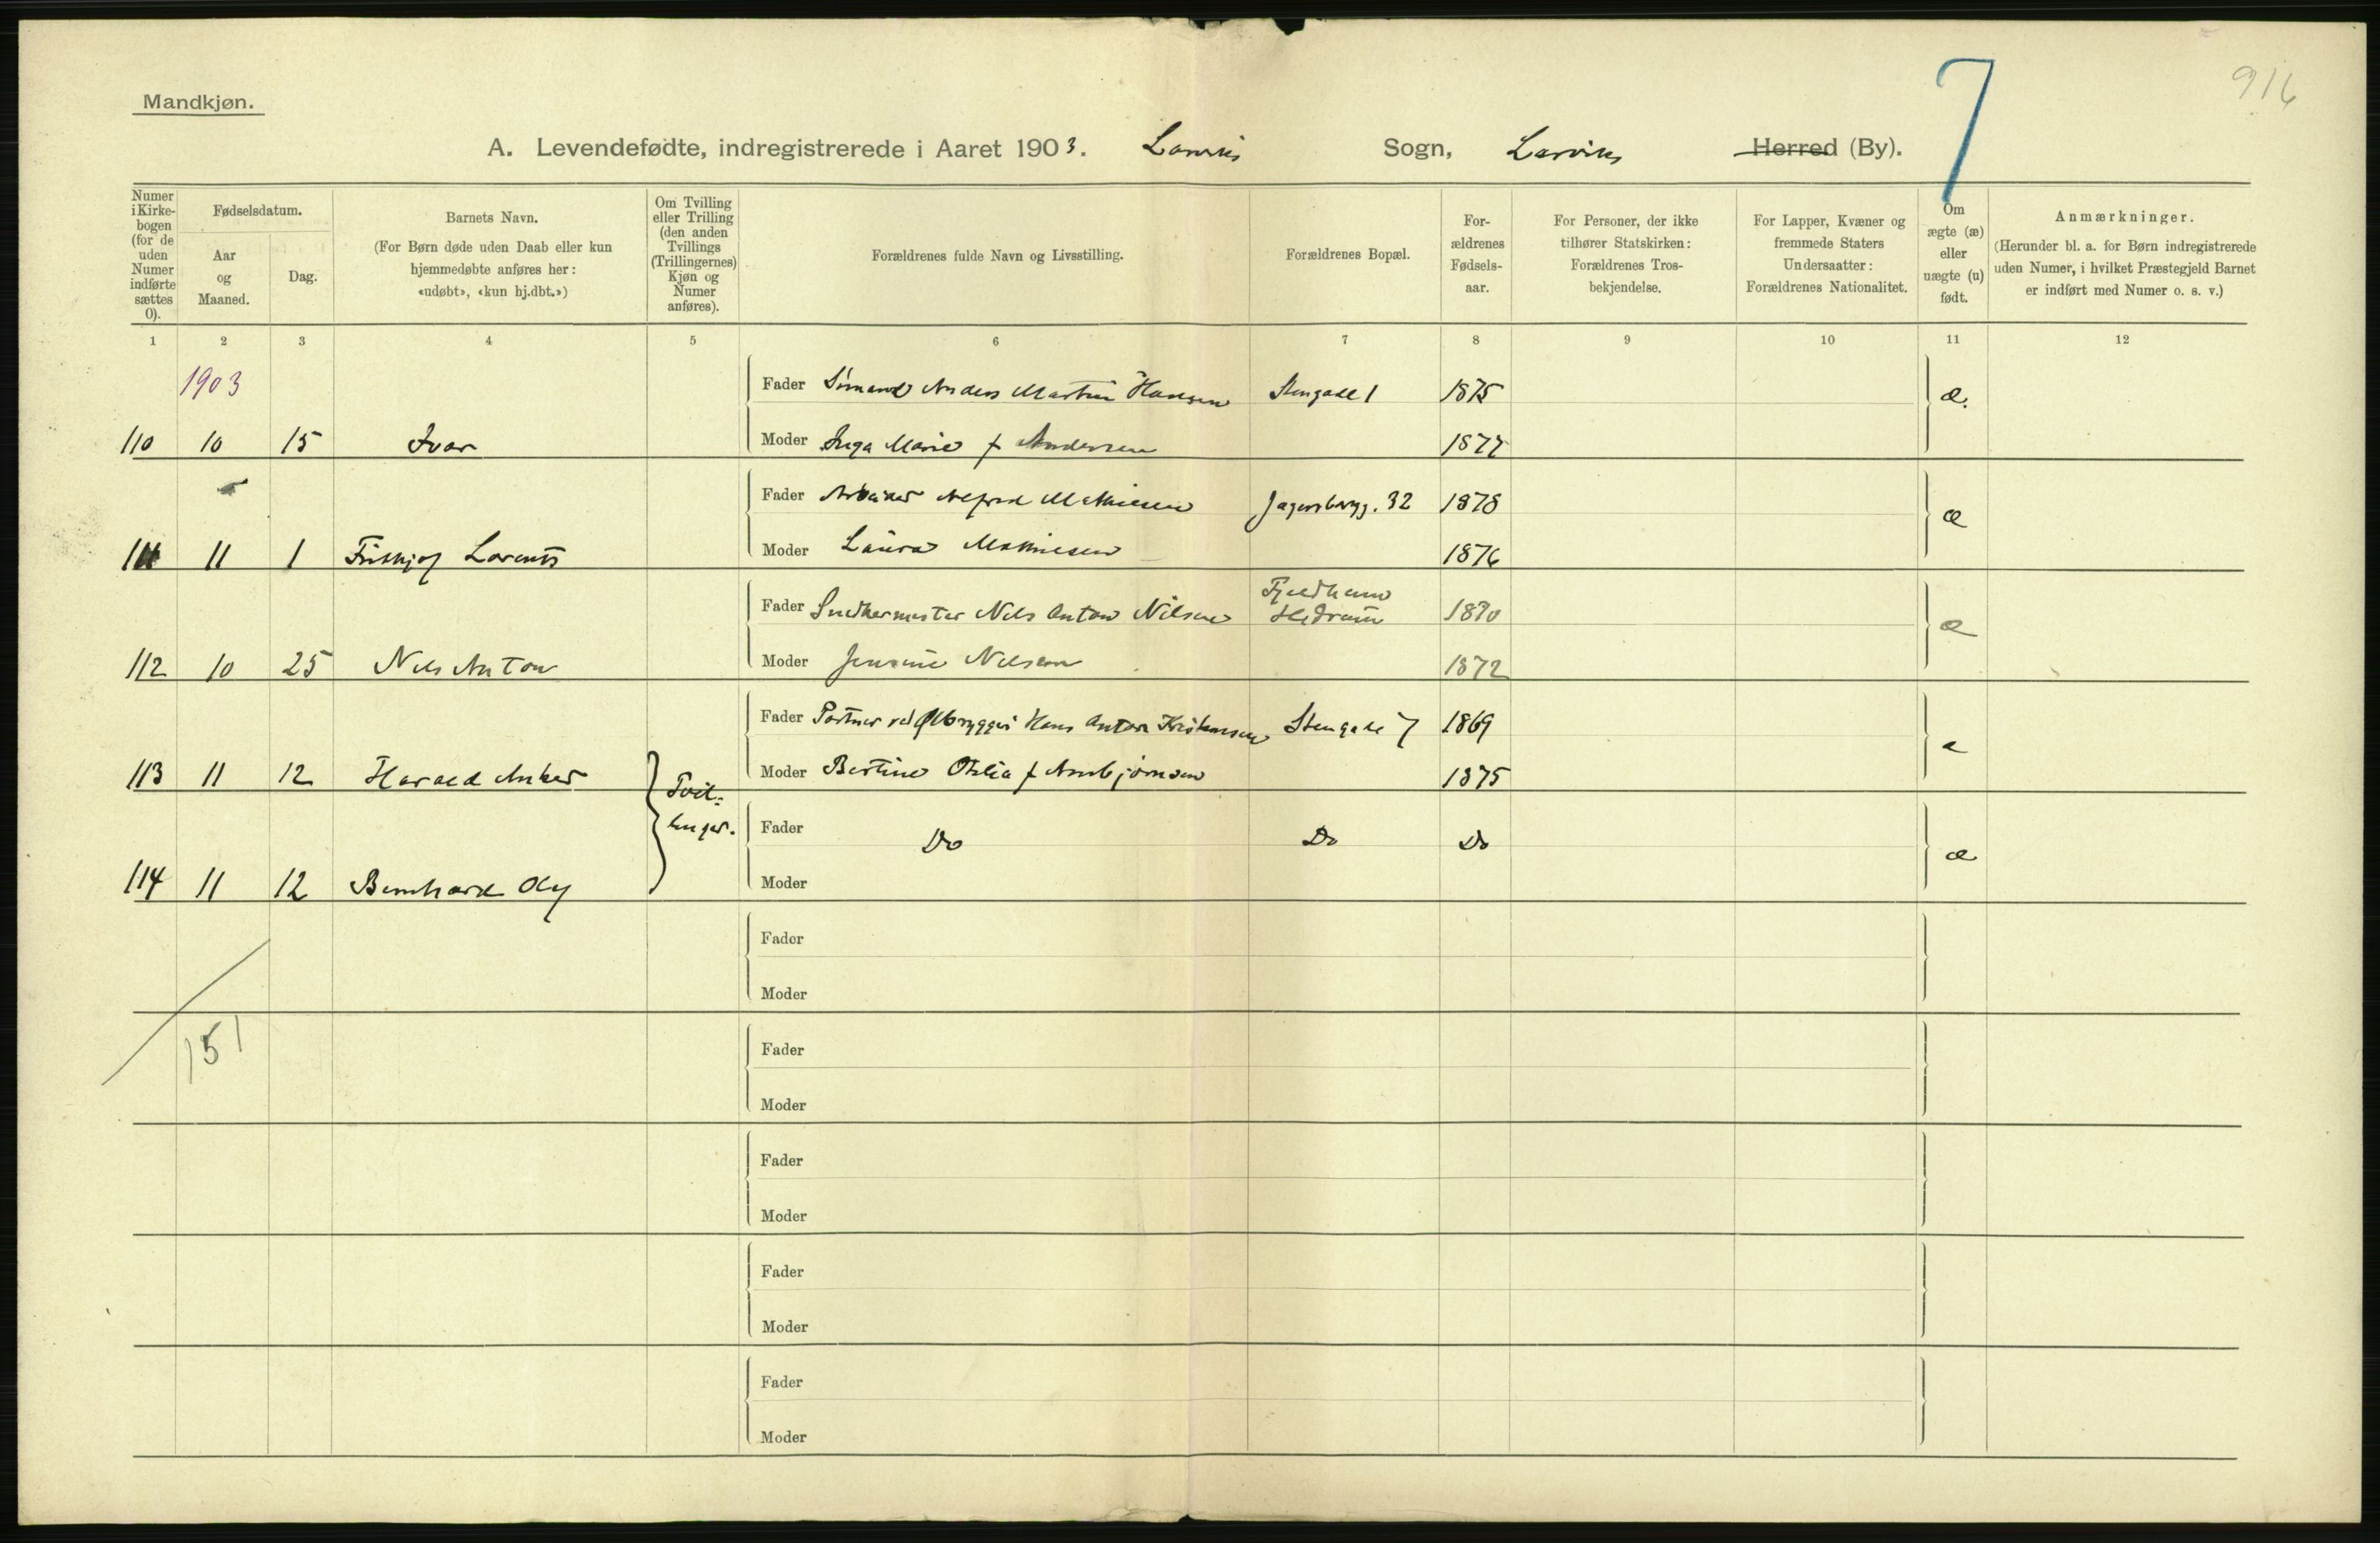 Mandkjøn.
7
916
A. Levendefødte, indregistrerede i Aaret 1903. Larviks Sogn, Larviks Herred (By).
Numer i Kirke-bogen (for de uden Numer indførte sættes 0).
Fødselsdatum.
Aar og Maaned.
Dag.
Barnets Navn.
(For Børn døde uden Daab eller kun hjemmedøbte anføres her: «udøbt», «kun hj.dbt.»)
Om Tvilling eller Trilling (den anden Tvillings (Trillingernes) Kjøn og Numer anføres).
Forældrenes fulde Navn og Livsstilling.
Forældrenes Bopæl.
For-ældrenes Fødsels-aar.
For Personer, der ikke tilhører Statskirken: Forældrenes Tros-bekjendelse.
For Lapper, Kvæner og fremmede Staters Undersaatter: Forældrenes Nationalitet.
Om ægte (æ) eller uægte (u) født.
Anmærkninger.
(Herunder bl. a. for Børn indregistrerede uden Numer, i hvilket Præstegjeld Barnet er indført med Numer o. s. v.)
1 2 3 4 5 6 7 8 9 10 11 12
1903
Fader Sømand Anders Martin Hansen Stengade 1 1875 æ.
110 10 15 Ivar Moder Inga Marie f Andersen 1877
Fader Arbeider Alfred Mathiesen Jegersborgg. 32 1878 æ
111 11 1 Frithjof Lorents Moder Laura Mathiesen 1876
Fader Snedkermester Nils Anton Nilsen Fjeldheim Hedrum 1870 æ
112 10 25 Nils Anton Moder Jensine Nilsen 1872
Fader Portner ved Ølbryggeri Hans Anton Kristensen Stengade 7 1869 æ
113 11 12 Harald Anker Tvil-linger. Moder Bertine Otilia f Arnbjørnsen 1875
Fader Do Do Do æ
114 11 12 Bernhard Olaf Moder
Fader
Moder
151
Fader
Moder
Fader
Moder
Fader
Moder
Fader
Moder